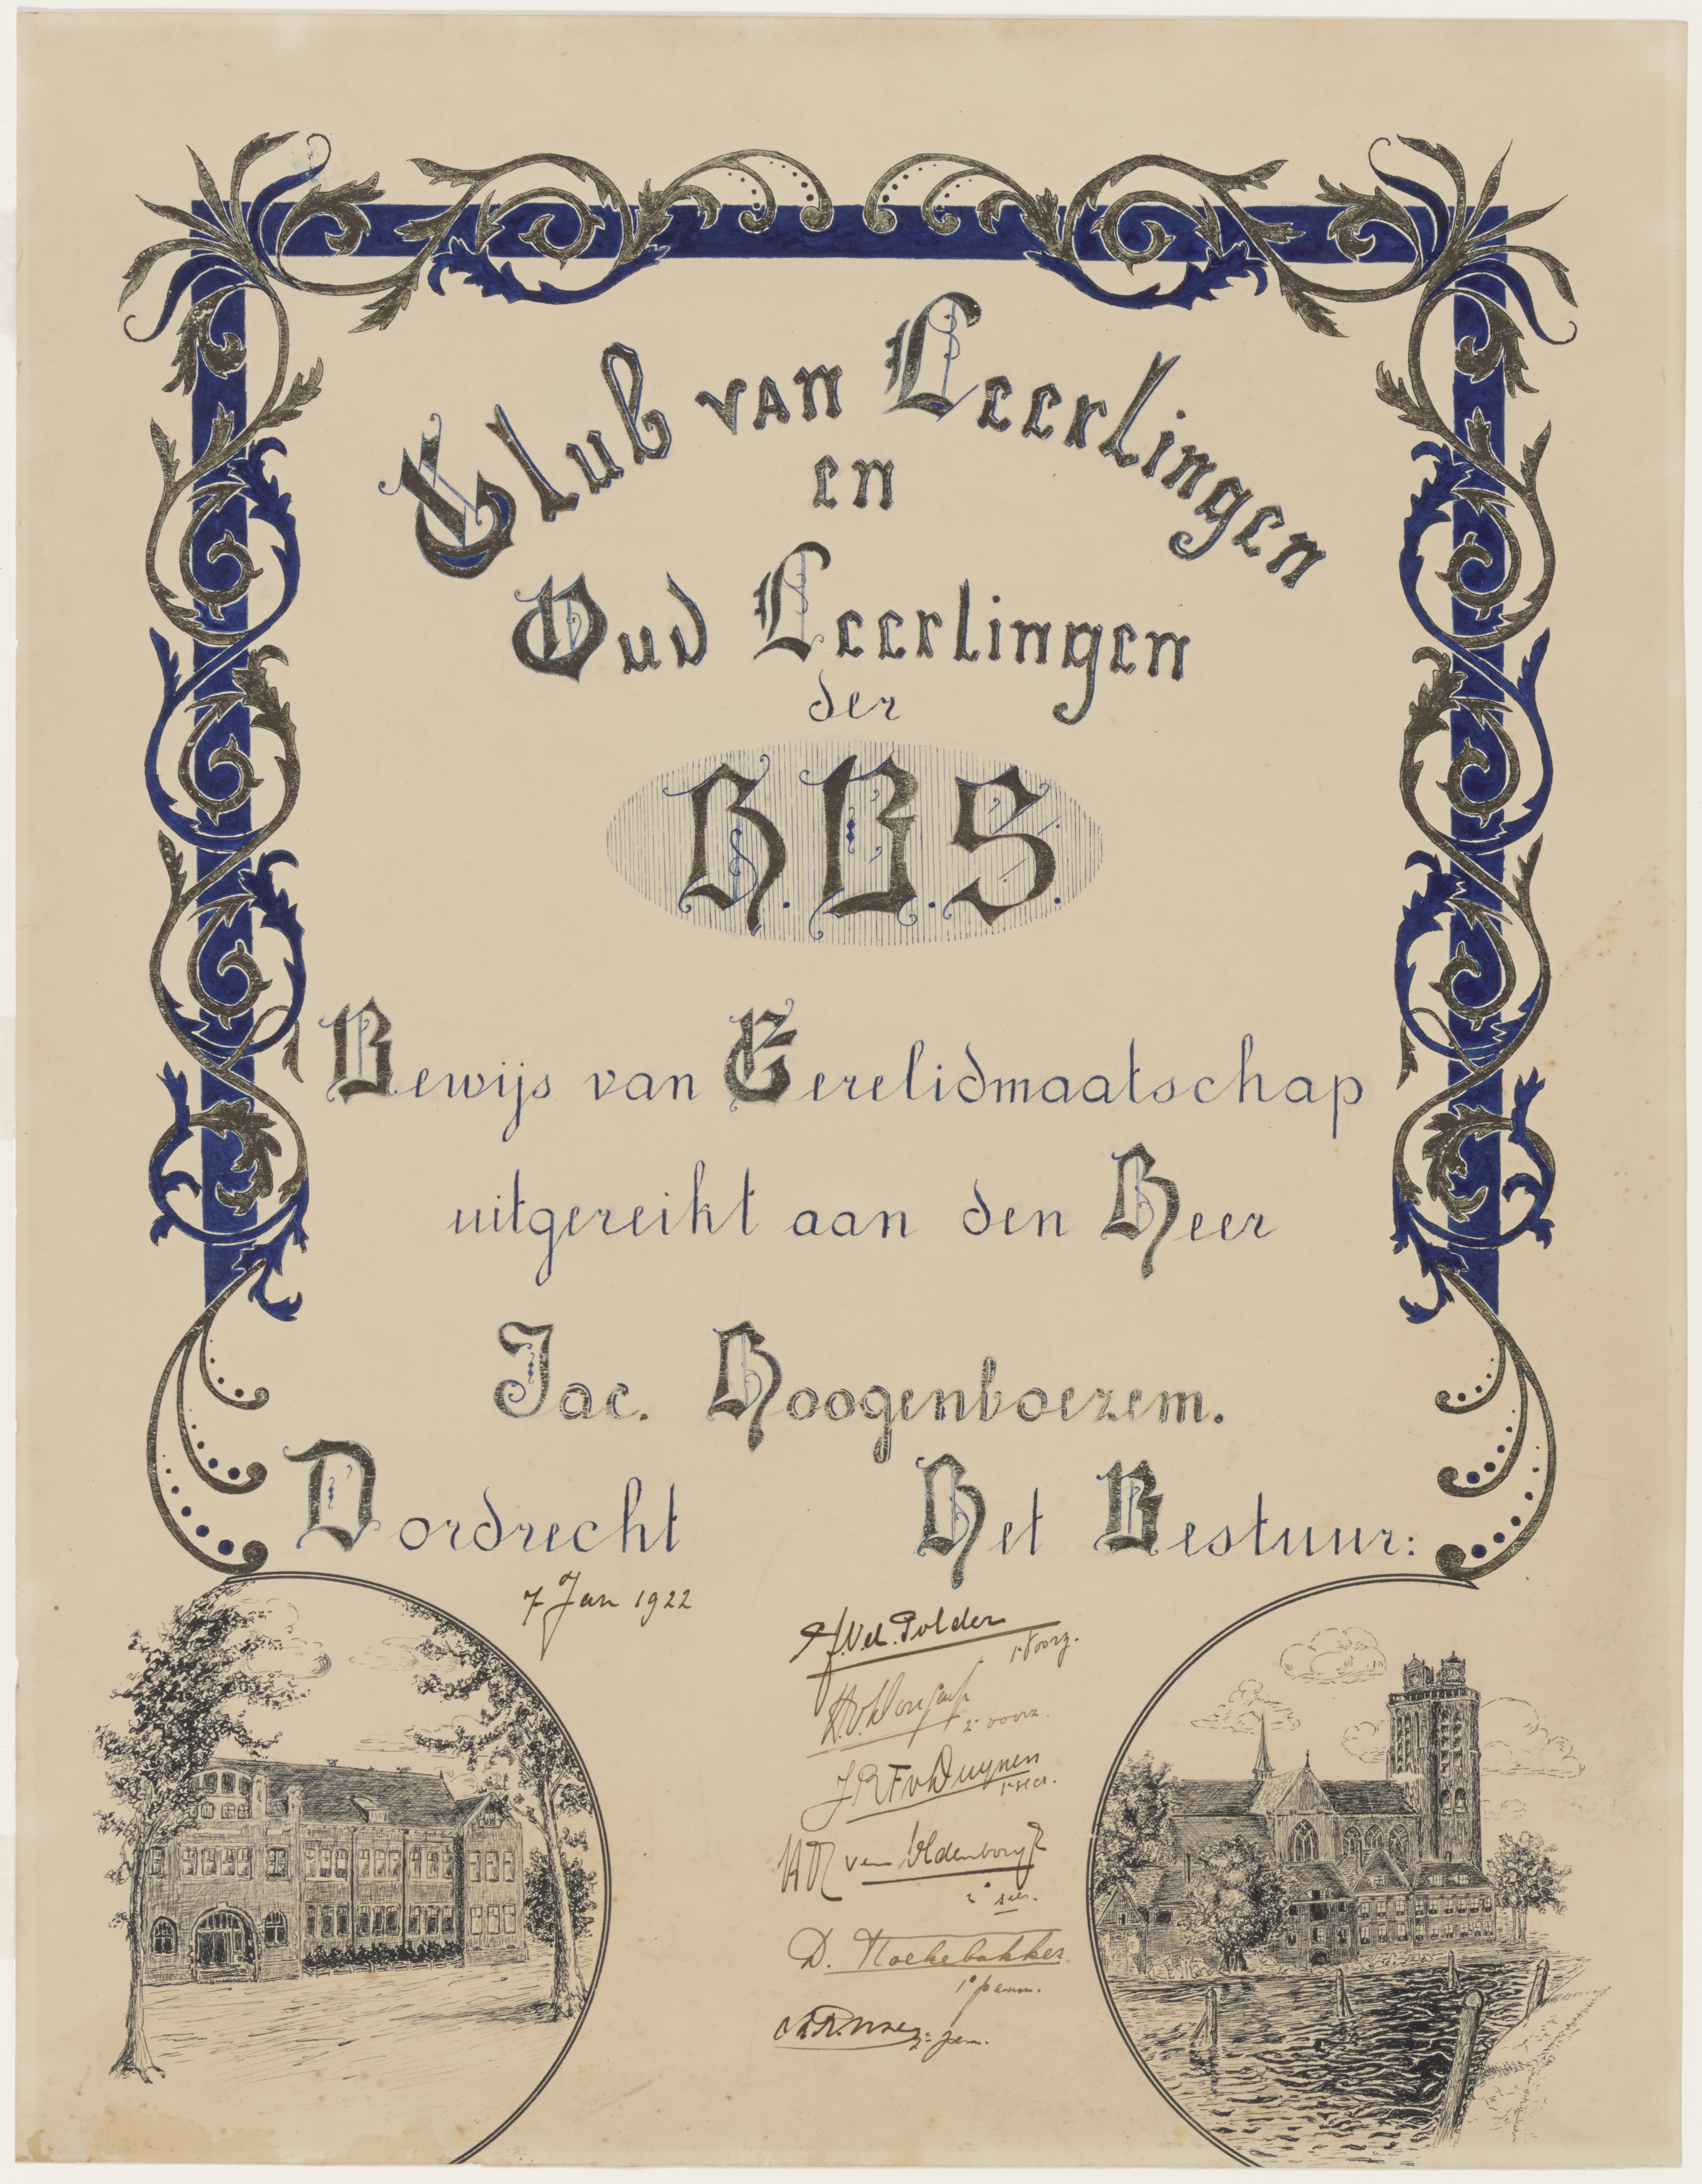 Club van Leerlingen
en
Oud Leerlingen
der
H.B.S.
Bewijs van Eerelidmaatschap
uitgereikt aan den Heer
Jac. Hoogenboezem.
Dordrecht
7 Jan 1922
Het Bestuur:
Polder
1e Voorz.
2e voorz.
J R F v Duynen
1e secr.
van Oldenborgh
2e secr.
D. Hoekebakker
1e penn.
2e pen.